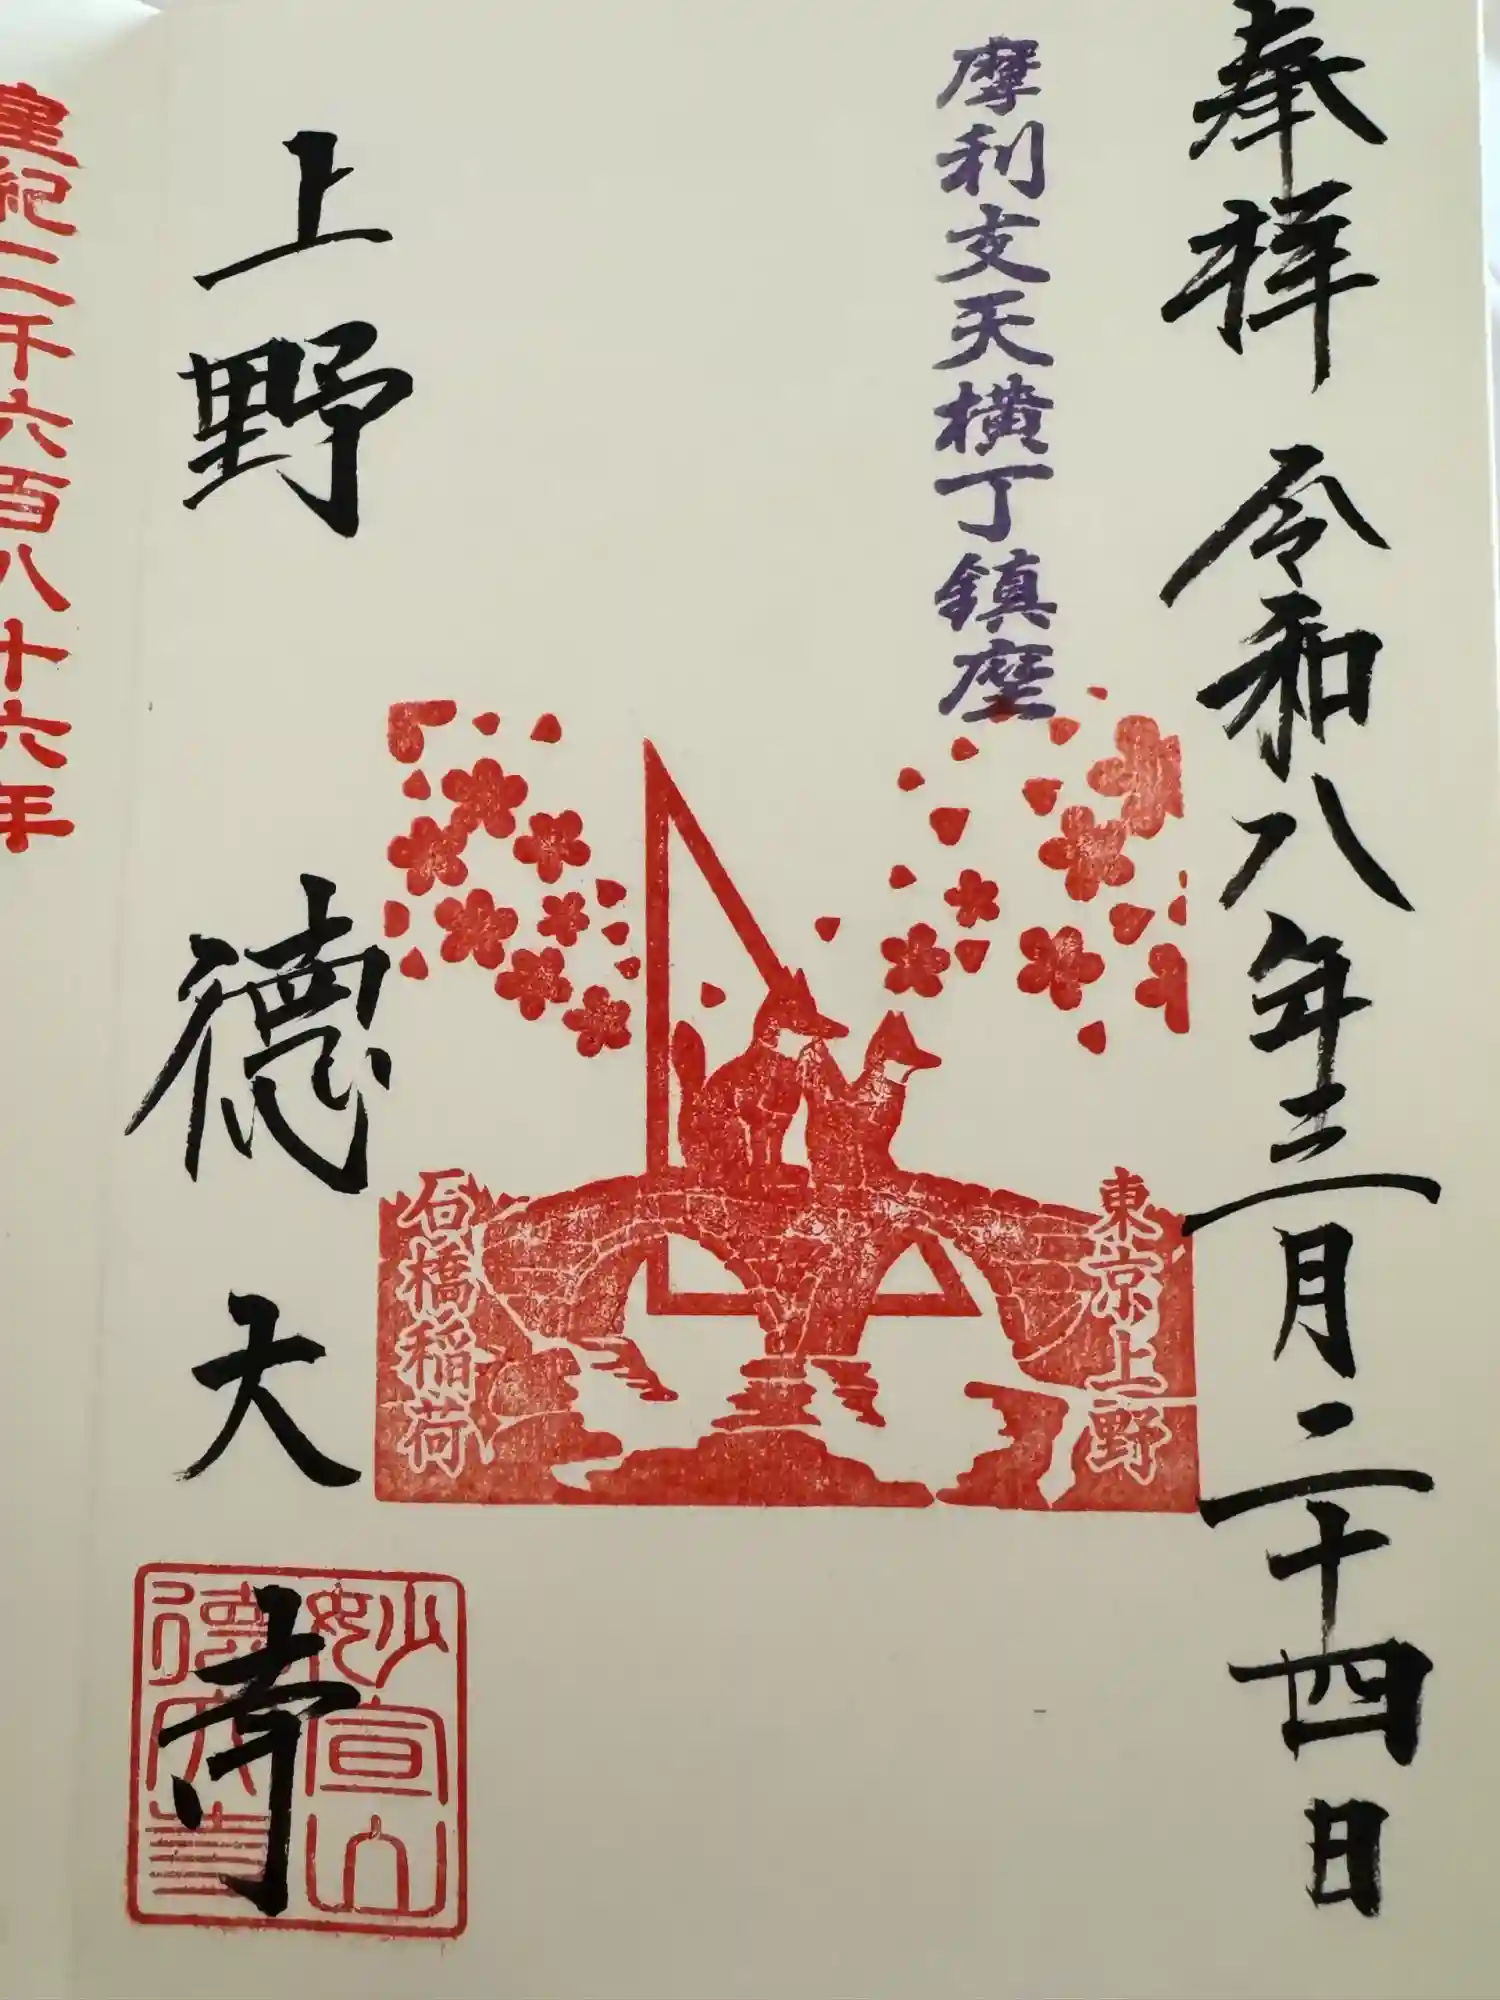 奉拝 令和八年三月二十四日
摩利支天横丁鎮座
東京上野
石橋稲荷
上野 德大寺
妙宣山
德大寺
皇紀二千六百八十六年